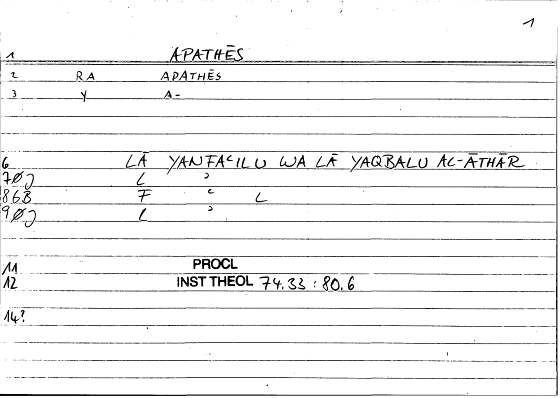 1
1 APATHĒS
2 RA APATHĒS
3 Y A-
6 LĀ YANFAʿILU WA LĀ YAQBALU AL-ĀTHĀR
7ØJ L ʾ
86B F ʿ L
9ØJ L ʾ
11 PROCL
12 INST THEOL 74.33 : 80.6
14?